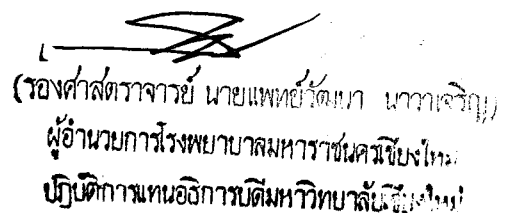 (รองศาสตราจารย์ นายแพทย์วัฒนา นาวาเจริญ)
ผู้อำนวยการโรงพยาบาลมหาราชนครเชียงใหม่
ปฏิบัติการแทนอธิการบดีมหาวิทยาลัยเชียงใหม่